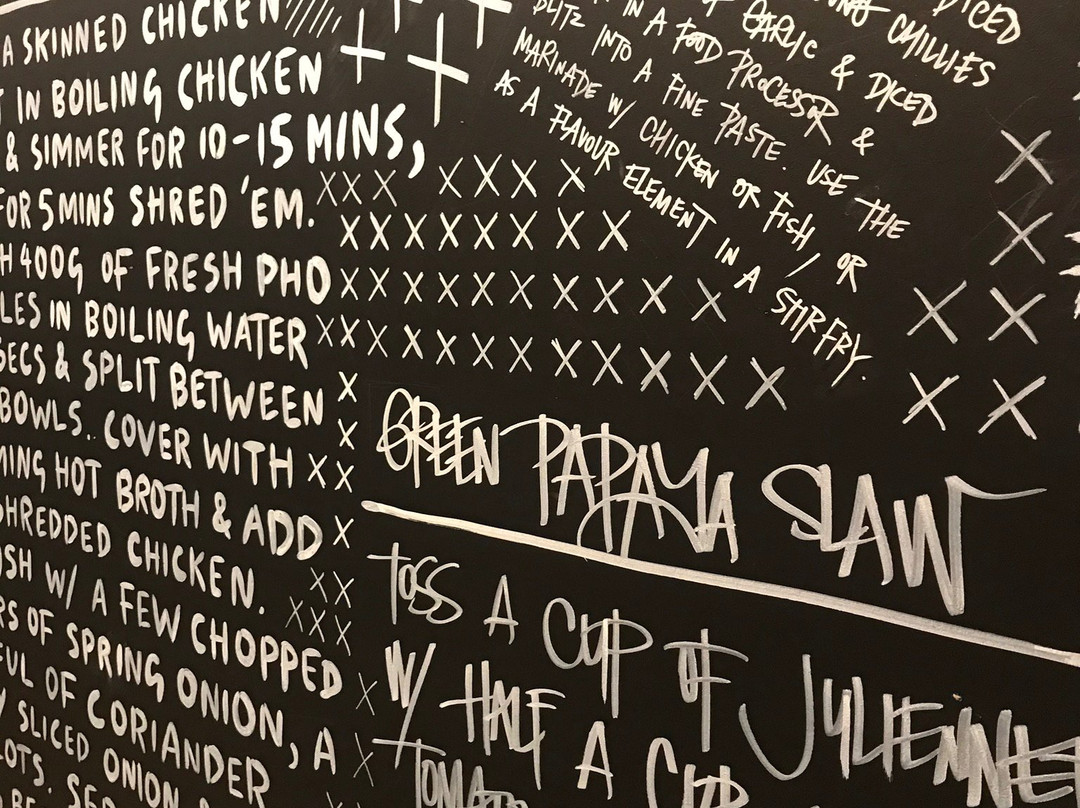 A SKINNED CHICKEN
IN BOILING CHICKEN
& SIMMER FOR 10-15 MINS,
FOR 5 MINS SHRED 'EM.
400G OF FRESH PHO
IN BOILING WATER
& SPLIT BETWEEN
BOWLS. COVER WITH
HOT BROTH & ADD
SHREDDED CHICKEN.
W/ A FEW CHOPPED
OF SPRING ONION, A
OF CORIANDER
SLICED ONION
DICED
CHILLIES
GARLIC & DICED
IN A FOOD PROCESSOR &
BLITZ INTO A FINE PASTE. USE THE
MARINADE W/ CHICKEN OR FISH, OR
AS A FLAVOUR ELEMENT IN A STIRFRY.
GREEN PAPAYA SLAW
TOSS A CUP OF JULIENNE
W/ HALF A CUP